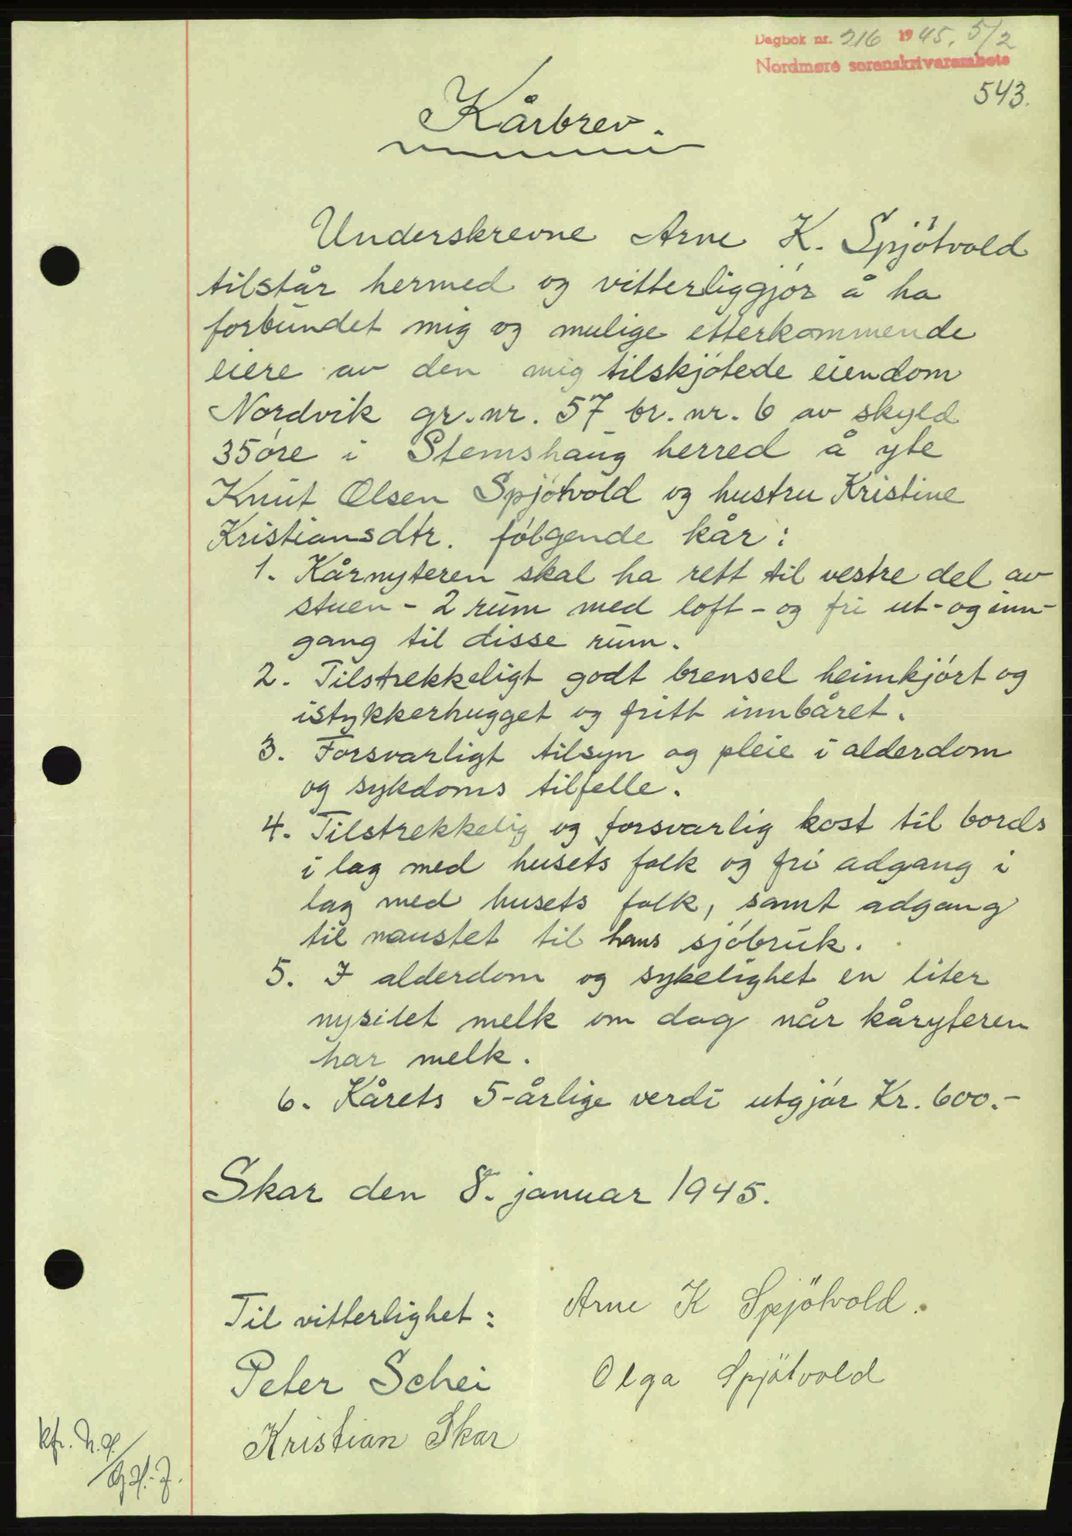 Dagbok nr. 216 1945. 5/2
Nordmøre sorenskrivarembete
543.
Kårbrev.
Underskrevne Arne K. Spjøtvold
tilstår hermed og vitterliggjør å ha
forbundet mig og mulige etterkommende
eiere av den mig tilskjøtede eiendom
Nordvik gr. nr. 57 br. nr. 6 av skyld
35 øre i Stemshaug herred å yte
Knut Olsen Spjøtvold og hustru Kristine
Kristiansdtr. følgende kår:
1. Kårnyteren skal ha rett til vestre del av
stuen - 2 rum med loft - og fri ut- og inn-
gang til disse rum.
2. Tilstrekkeligt godt brensel heimkjørt og
istykkerhugget og fritt innbåret.
3. Forsvarligt tilsyn og pleie i alderdom
og sykdoms tilfelle.
4. Tilstrekkelig og forsvarlig kost til bords
i lag med husets folk og fri adgang i
lag med husets folk, samt adgang
til naustet til hans sjøbruk.
5. I alderdom og sykelighet en liter
nysilet melk om dag når kåryteren
har melk.
6. Kårets 5-årlige verdi utgjør Kr. 600.-
Skar den 8. januar 1945.
Til vitterlighet:
Peter Schei
Kristian Skar
Arne K Spjøtvold.
Olga Spjøtvold
kfr.